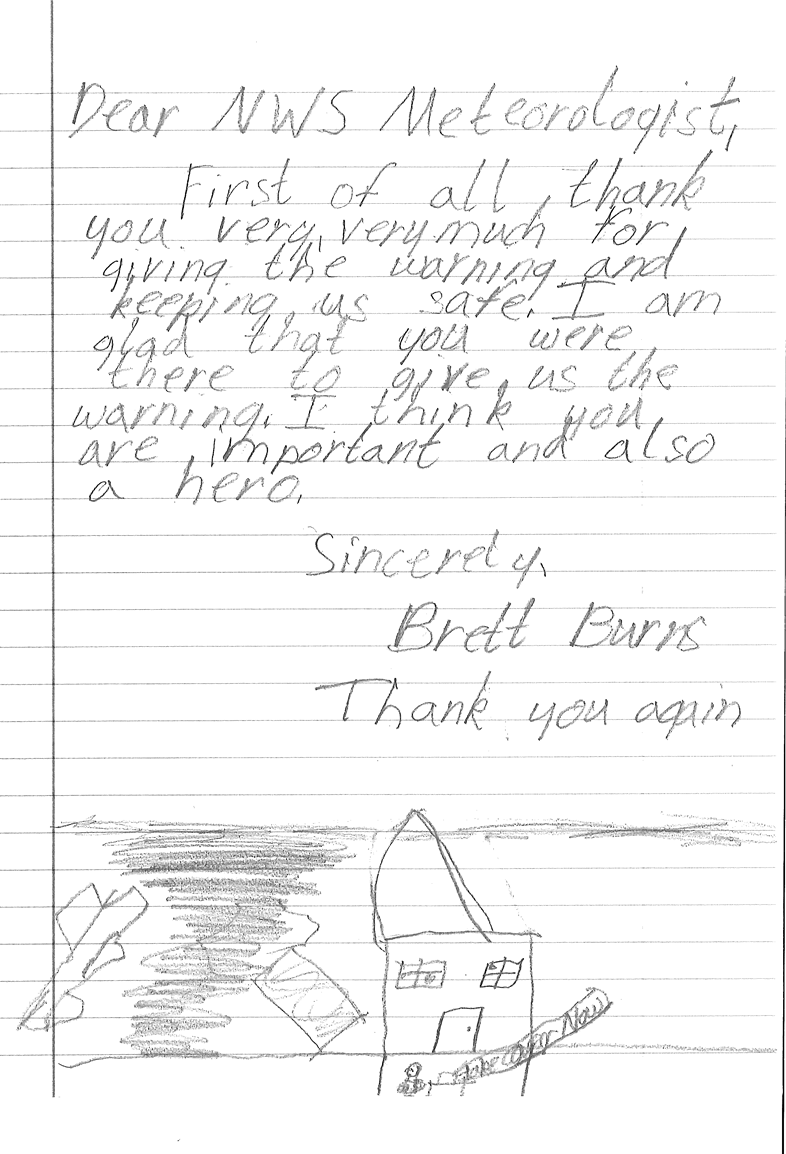 Dear NWS Meteorologist,
First of all, thank
you very, very much for
giving the warning and
keeping us safe. I am
glad that you were
there to give us the
warning. I think you
are important and also
a hero.
Sincerely,
Brett Burns
Thank you again
take cover Now